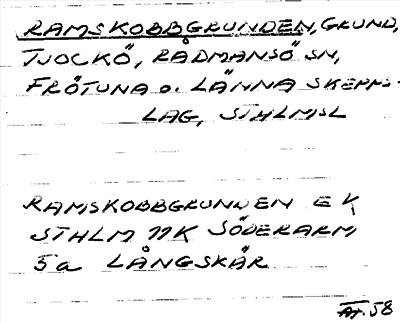 RAMSKOBBGRUNDEN, GRUND,
TJOCKÖ, RÅDMANSÖ SN,
FRÖTUNA o. LÄNNA SKEPPS-
LAG, STHLMSL
RAMSKOBBGRUNDEN EK
STHLM 11K SÖDERARM
5a LÅNGSKÄR
58